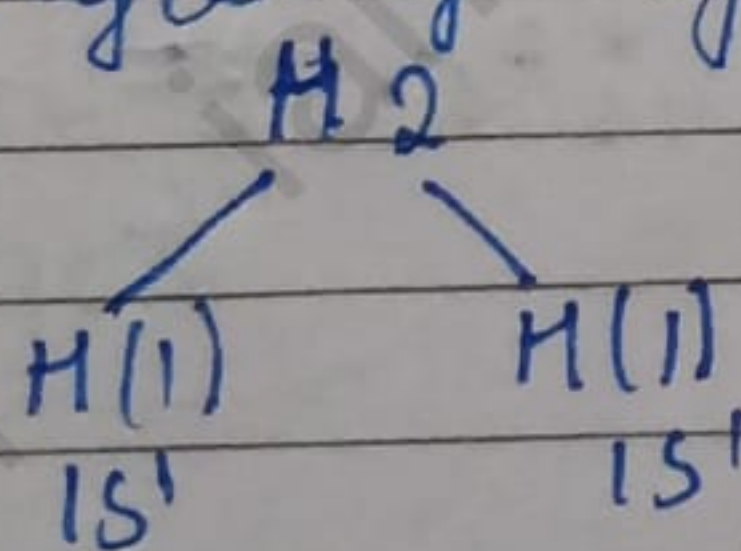 H 2
H(1) H(1)
1S¹ 1S¹